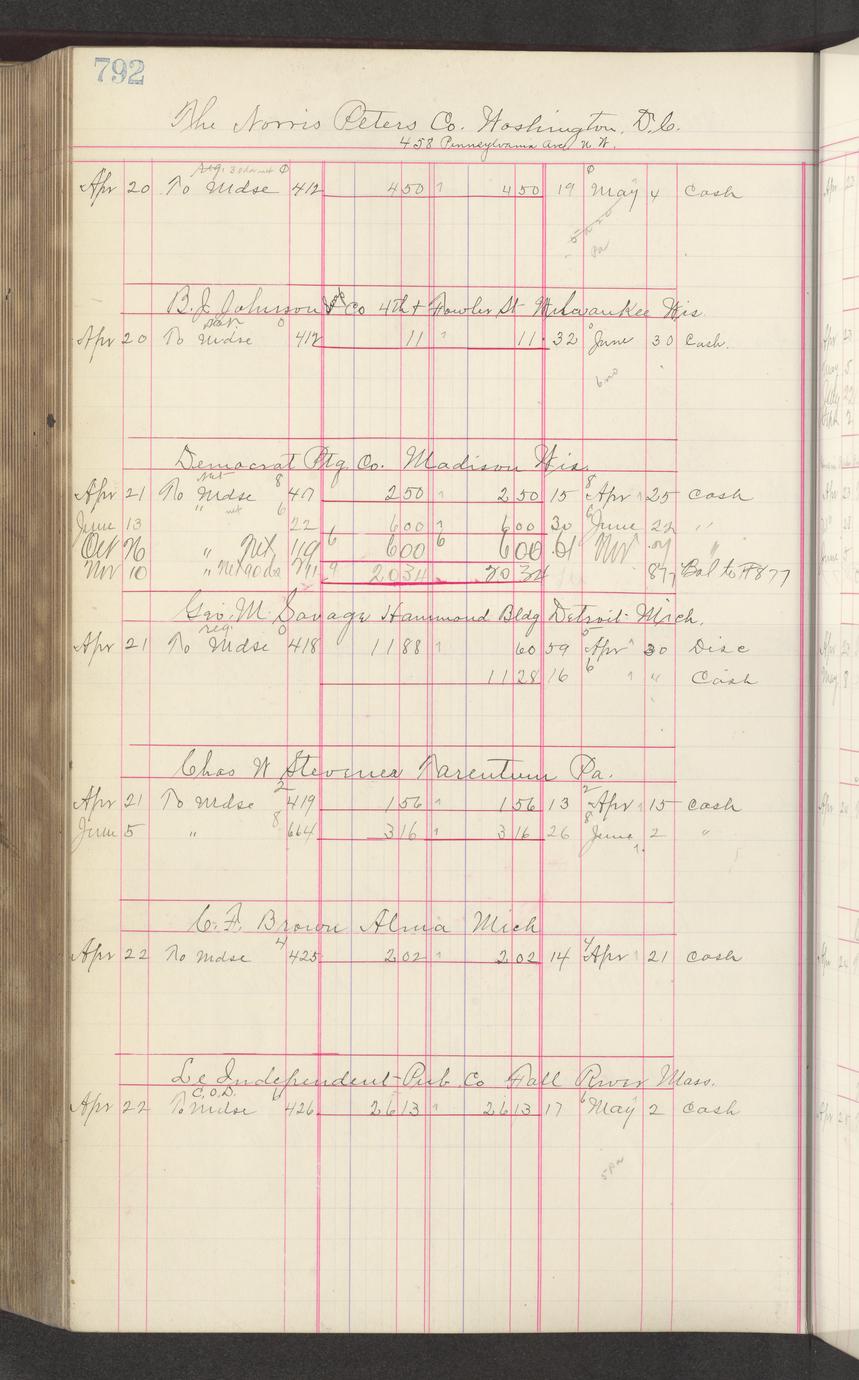 792
The Norris Peters Co. Washington, D.C.
458 Pennsylvania Ave N W.
Apr 20 To Mdse 412 4 50 4 50 19 May 4 Cash
B. J. Johnson Soap Co 4th & Fowler St Milwaukee Wis.
Apr 20 To Mdse 412 11 11 32 June 30 Cash.
6 mo
Democrat Ptg. Co. Madison Wis.
Net
Apr 21 To Mdse 8 47 2 50 2 50 15 8 Apr 25 Cash
June 13 " net 6 22 6 00 6 00 30 6 June 22 "
Oct 26 " Net 119 6 6 00 6 6 00 Nov "
Nov 10 " Net 90 da 211 9 20 34 20 34 877 Bal to F 877
Geo. M. Savage Hammond Bldg Detroit Mich.
reg.
Apr 21 To Mdse 418 11 88 60 59 Apr 30 Disc
11 28 16 6 " Cash
Chas W Stevenea Tarentum Pa.
Apr 21 To Mdse 2 419 1 56 1 56 13 2 Apr 15 Cash
June 5 " 8 664 3 16 3 16 26 8 June 2 "
C. F. Brown Alma Mich
Apr 22 To Mdse 4 425 2 02 2 02 14 4 Apr 21 Cash
Le Independent Pub. Co Fall River Mass.
C.O.D.
Apr 22 To Mdse 6 426 26 13 26 13 17 6 May 2 Cash